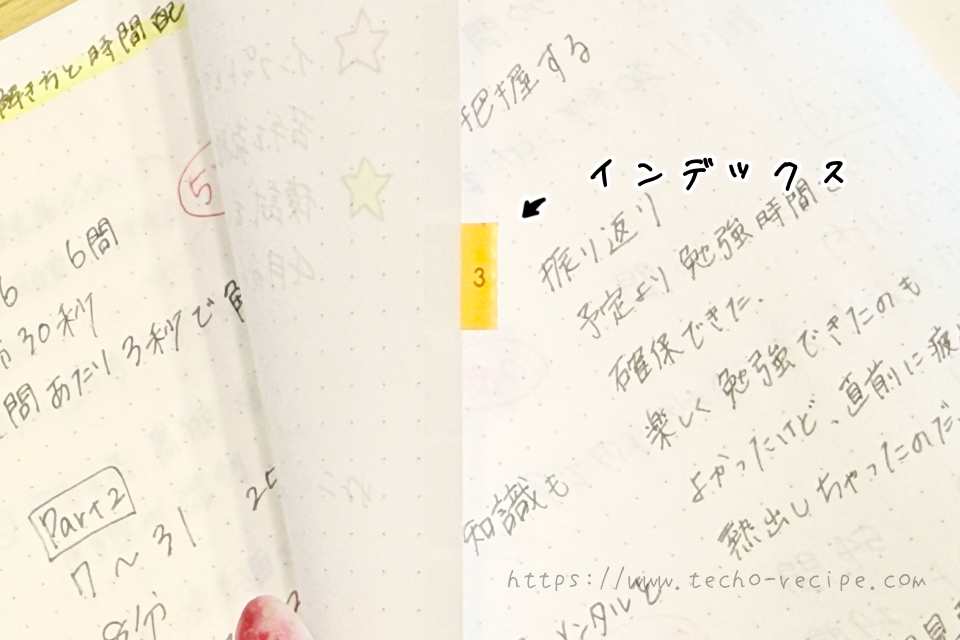 解き方と時間配
5
6問
30秒
問あたり3秒で
Part2
7〜31
25
把握する
インデックス
3
振り返り
予定より勉強時間を
確保できた.
楽しく勉強できたのも
よかったけど、直前に疲
熱出しちゃったのだ
知識も
メンタルも
https://www.techo-recipe.com